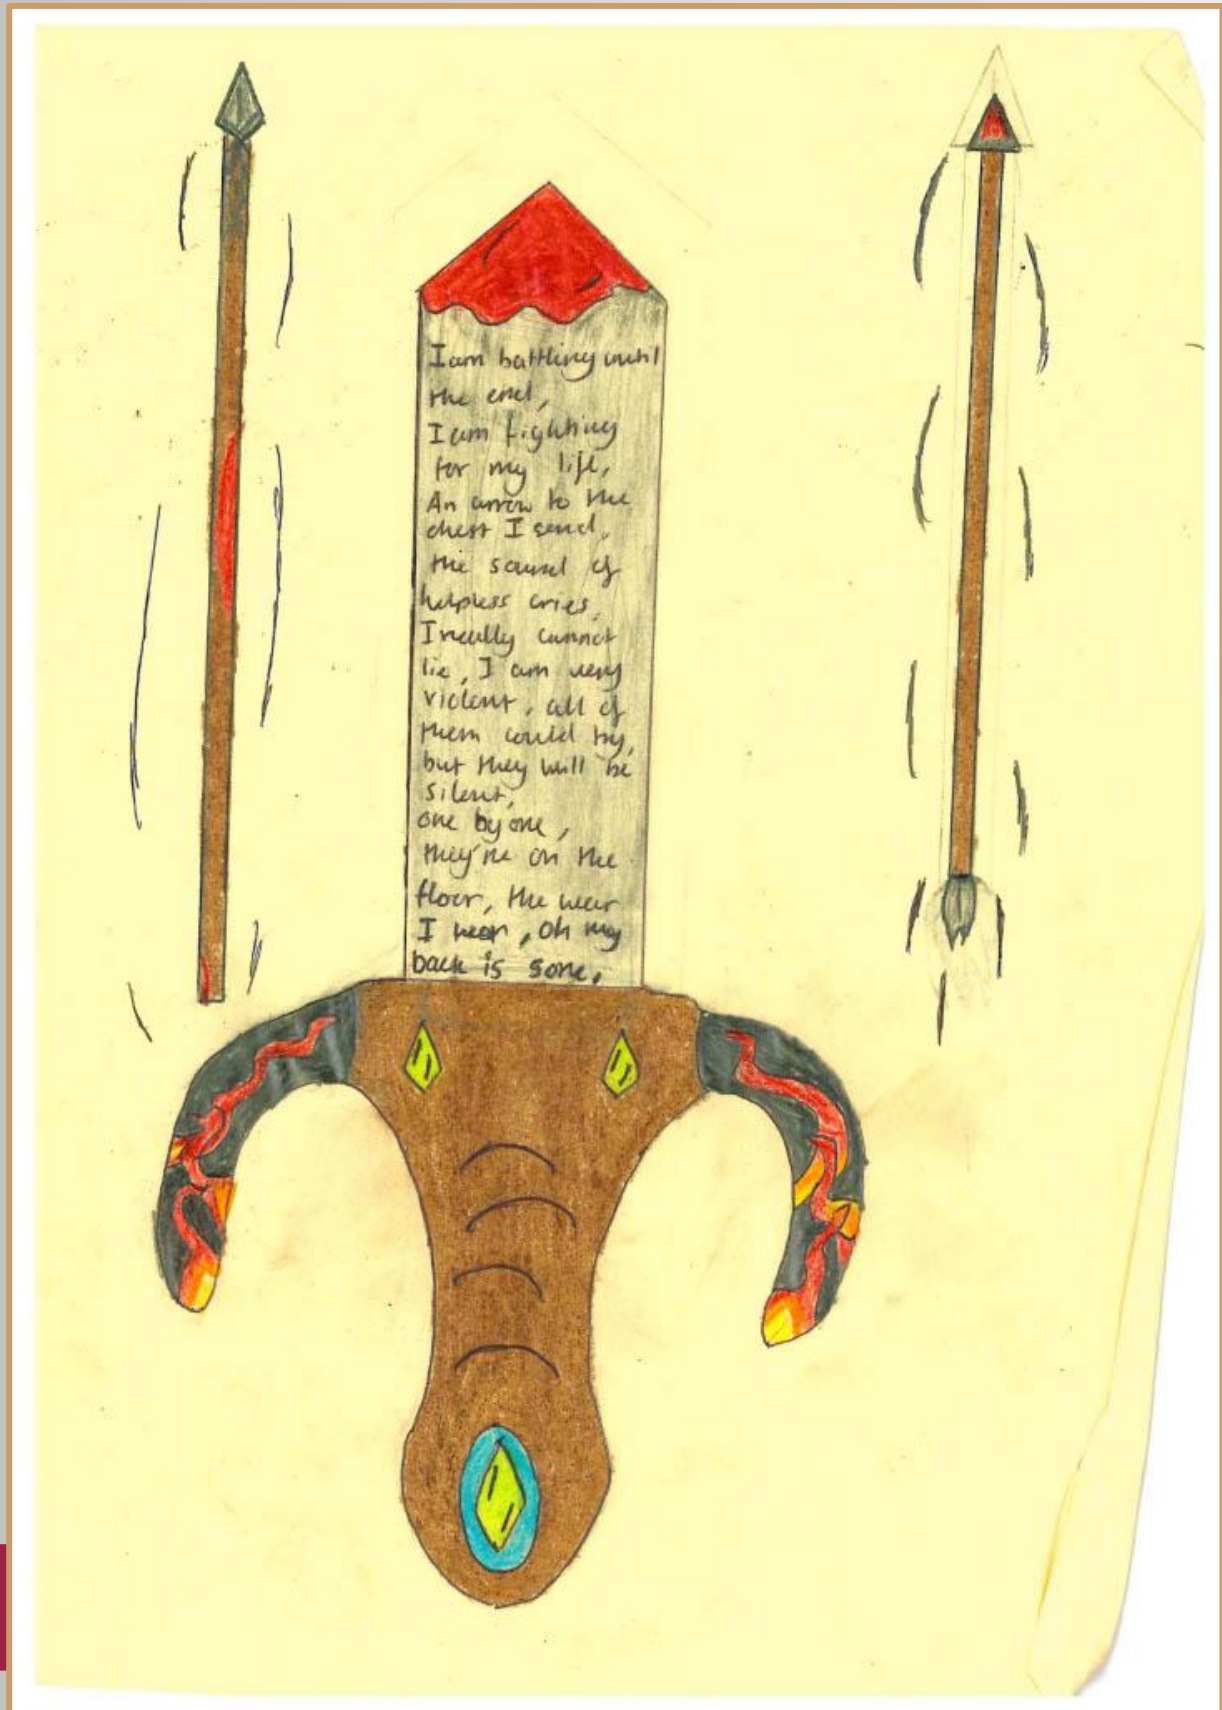 I am battling until
the end,
I am fighting
for my life,
An arrow to the
chest I send,
the sound of
helpless cries,
I really cannot
lie, I am very
violent, all of
them could try,
but they will be
silent,
one by one,
they're on the
floor, the
I, oh my
back is sore,